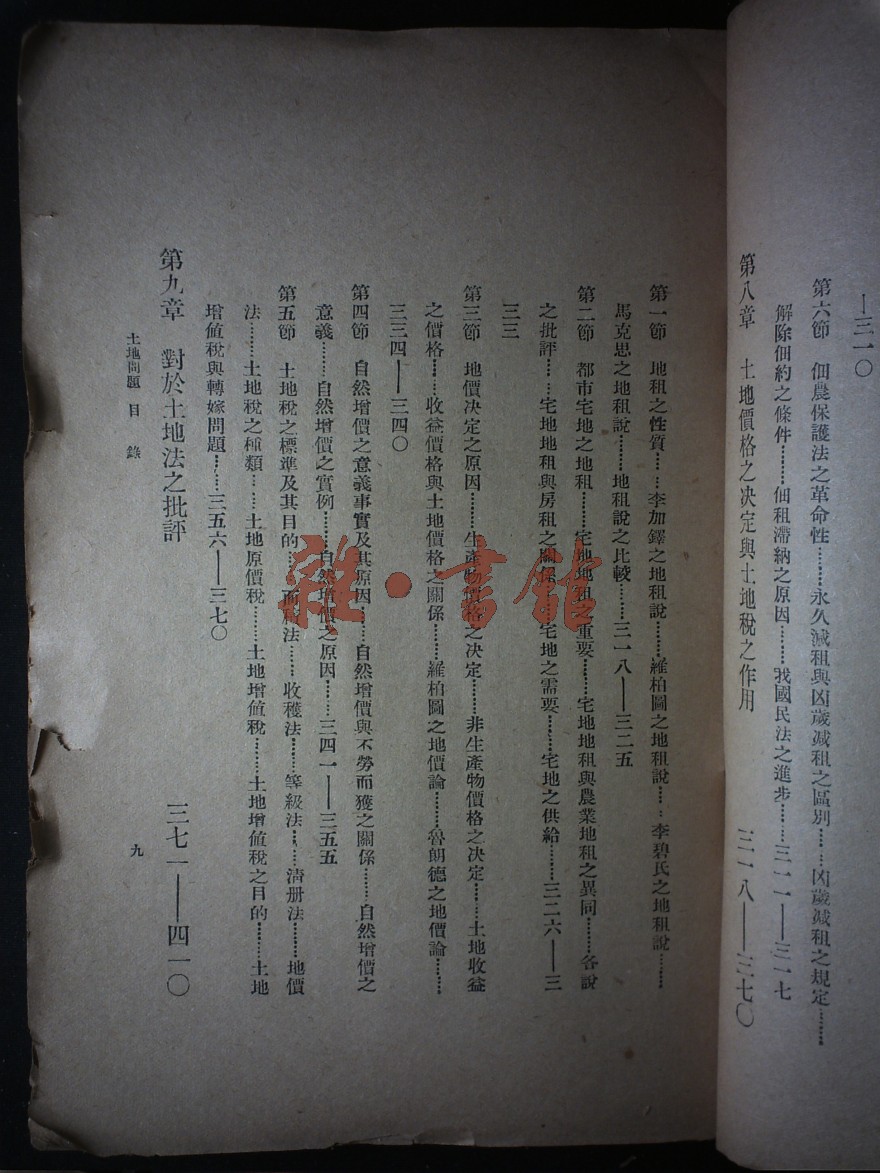 —三一〇
第六節　佃農保護法之革命性………永久減租與凶歲減租之區別……凶歲減租之規定………
解除佃約之條件………佃租滯納之原因………我國民法之進步………三一一——三一七
第八章　土地價格之決定與土地稅之作用　三一八——三七〇
第一節　地租之性質……李加鐸之地租說………羅柏圖之地租說……李碧氏之地租說………
馬克思之地租說………地租說之比較………三一八——三二五
第二節　都市宅地之地租………宅地地租之重要………宅地地租與農業地租之異同………各說
之批評……宅地地租與房租之關係……宅地之需要……宅地之供給………三二六——三
三三
第三節　地價决定之原因………生產物價格之决定………非生產物價格之决定………土地收益
之價格………收益價格與土地價格之關係………羅柏圖之地價論………魯朗德之地價論………
三三四——三四〇
第四節　自然增價之意義事實及其原因………自然增價與不勞而獲之關係………自然增價之
意義………自然增價之實例………自然增價之原因………三四一——三五五
第五節　土地稅之標準及其目的……面積法………收穫法………等級法……清册法………地價
法………土地稅之種類……土地原價稅………土地增値稅………土地增値稅之目的………土地
增値稅與轉嫁問題………三五六——三七〇
第九章　對於土地法之批評　三七一——四一〇
土地問題　目錄　九
雜·書館